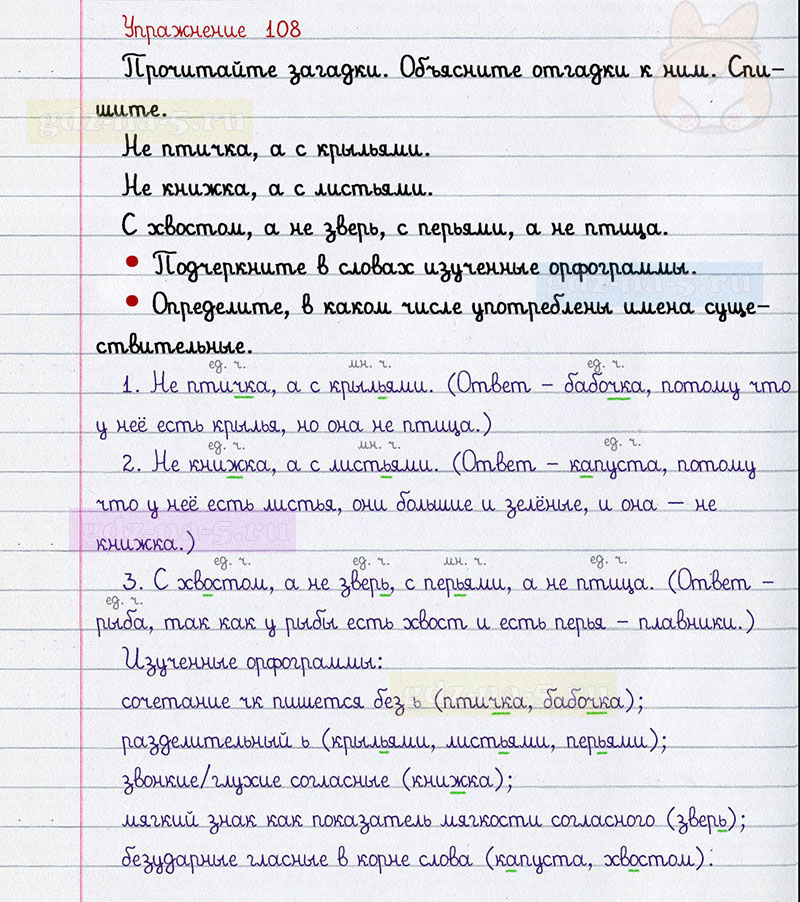 Упражнение 108
Прочитайте загадки. Объясните отгадки к ним. Спи-
шите.
gdz-na-5.ru
Не птичка, а с крыльями.
Не книжка, а с листьями.
С хвостом, а не зверь, с перьями, а не птица.
• Подчеркните в словах изученные орфограммы.
gdz-na-5.ru
• Определите, в каком числе употреблены имена суще-
ствительные.
ед. ч. мн. ч. ед. ч.
1. Не птичка, а с крыльями. (Ответ – бабочка, потому что
у неё есть крылья, но она не птица.)
ед. ч. мн. ч. ед. ч.
2. Не книжка, а с листьями. (Ответ – капуста, потому
что у неё есть листья, они большие и зелёные, и она — не
gdz-na-5.ru
книжка.)
ед. ч. ед. ч. мн. ч. ед. ч.
3. С хвостом, а не зверь, с перьями, а не птица. (Ответ –
ед. ч.
рыба, так как у рыбы есть хвост и есть перья – плавники.)
Изученные орфограммы:
gdz-na-5.ru
сочетание чк пишется без ь (птичка, бабочка);
разделительный ь (крыльями, листьями, перьями);
звонкие/глухие согласные (книжка);
мягкий знак как показатель мягкости согласного (зверь);
безударные гласные в корне слова (капуста, хвостом).